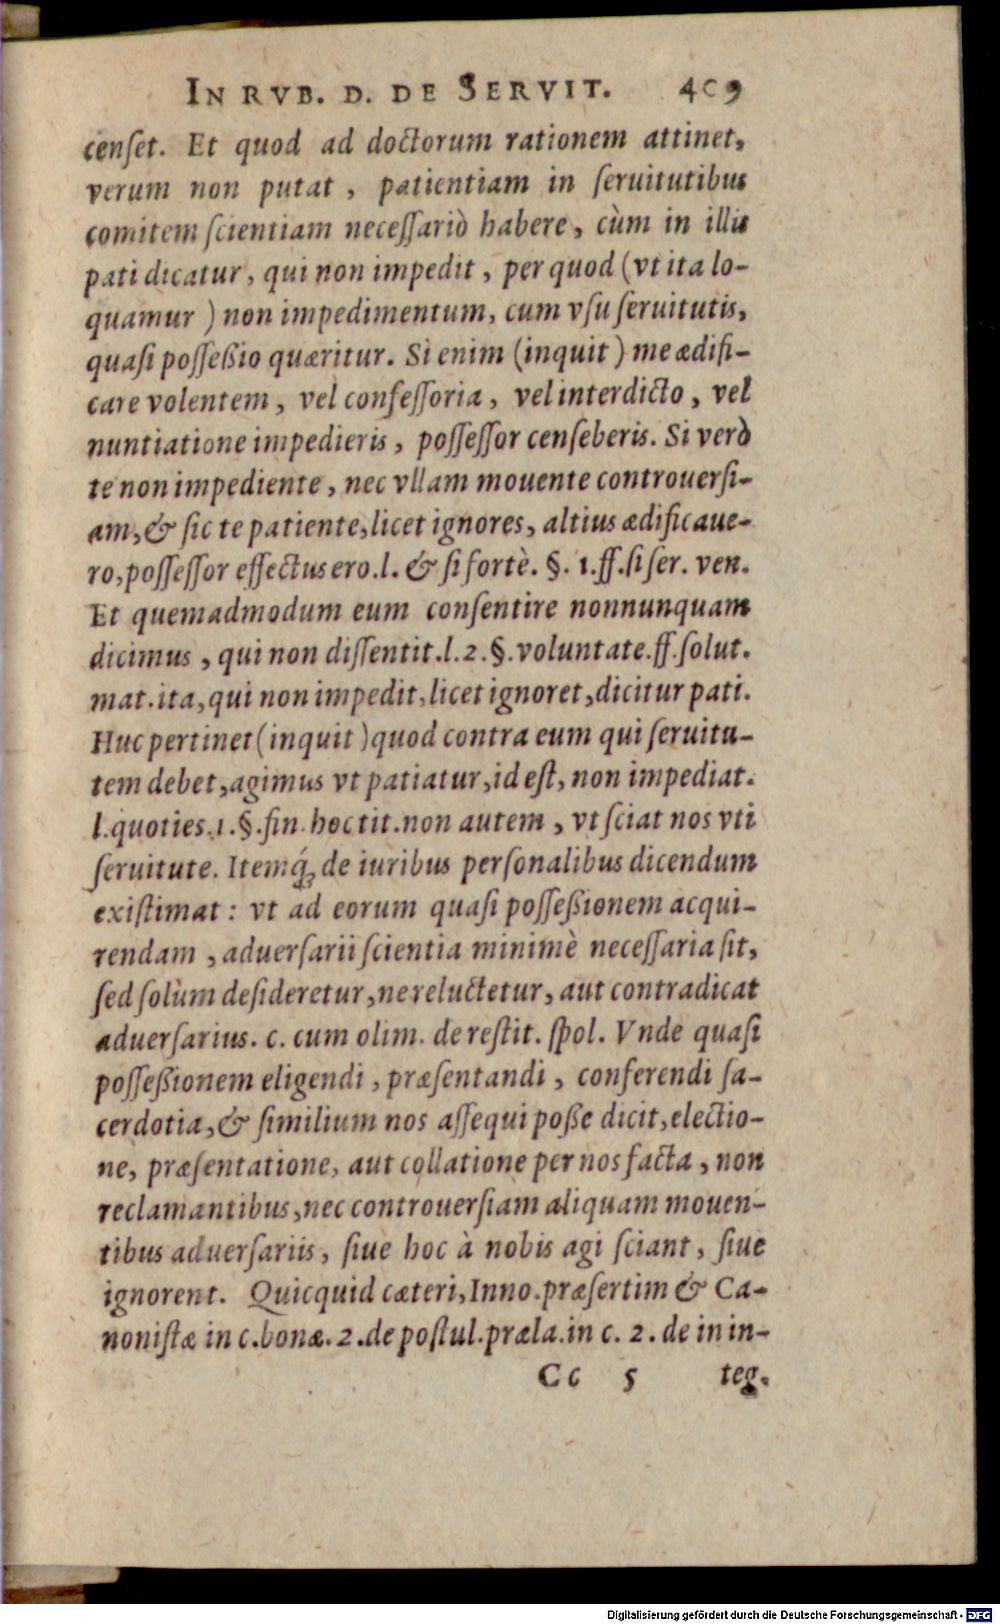 IN RVB. D. DE SERVIT. 409
cenſet. Et quod ad doctorum rationem attinet,
verum non putat, patientiam in ſeruitutibus
comitem ſcientiam neceſſariò habere, cùm in illis
pati dicatur, qui non impedit, per quod (vt ita lo-
quamur) non impedimentum, cum vſu ſeruitutis,
quaſi poſſeßio quæritur. Si enim (inquit) me ædifi-
care volentem, vel confeſſoria, vel interdicto, vel
nuntiatione impedieris, poſſeſſor cenſeberis. Si verò
te non impediente, nec vllam mouente controuerſi-
am, & ſic te patiente, licet ignores, altius ædificaue-
ro, poſſeſſor effectus ero. l. & ſi fortè. §. 1. ff. ſi ſer. ven.
Et quemadmodum eum conſentire nonnunquam
dicimus, qui non diſſentit. l. 2. §. voluntate. ff. ſolut.
mat. ita, qui non impedit, licet ignoret, dicitur pati.
Huc pertinet (inquit) quod contra eum qui ſeruitu-
tem debet, agimus vt patiatur, id eſt, non impediat.
l. quoties. 1. §. fin. hoc tit. non autem, vt ſciat nos vti
ſeruitute. Itemq́; de iuribus perſonalibus dicendum
exiſtimat: vt ad eorum quaſi poſſeßionem acqui-
rendam, aduerſarii ſcientia minimè neceſſaria ſit,
ſed ſolùm deſideretur, ne reluctetur, aut contradicat
aduerſarius. c. cum olim. de reſtit. ſpol. Vnde quaſi
poſſeßionem eligendi, præſentandi, conferendi ſa-
cerdotia, & ſimilium nos aſſequi poße dicit, electio-
ne, præſentatione, aut collatione per nos facta, non
reclamantibus, nec controuerſiam aliquam mouen-
tibus aduerſariis, ſiue hoc à nobis agi ſciant, ſiue
ignorent. Quicquid cæteri, Inno. præſertim & Ca-
noniſtæ in c. bonæ. 2. de poſtul. præla. in c. 2. de in in-
Cc 5 teg.
Digitalisierung gefördert durch die Deutsche Forschungsgemeinschaft - DFG